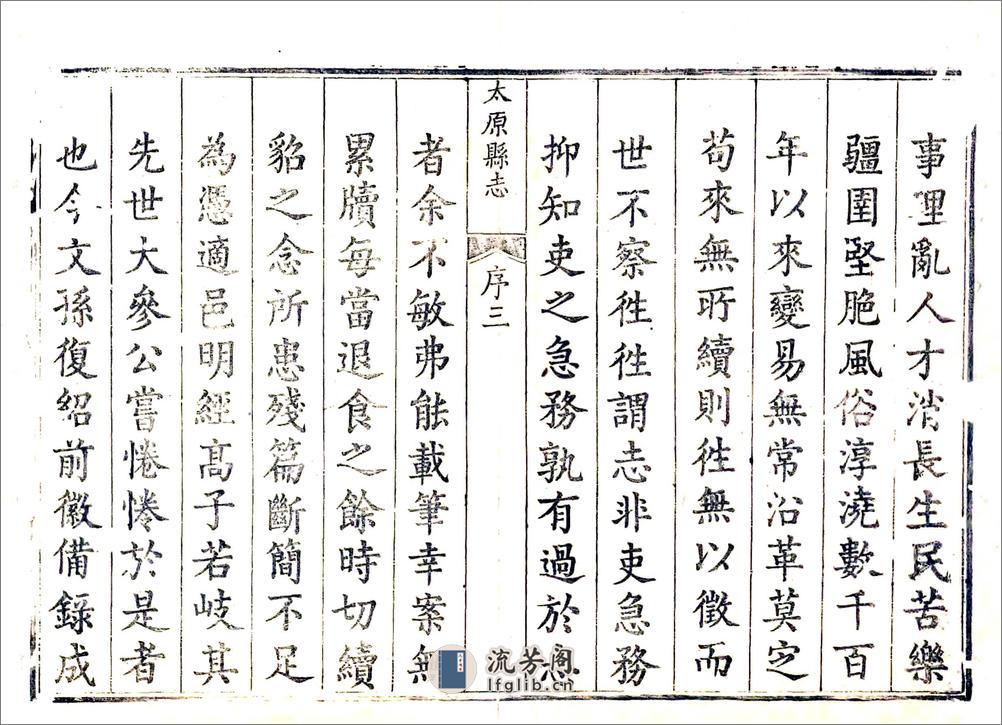 事理亂人才消長生民苦樂
疆圉堅脆風俗淳澆數千百
年以來變易無常沿革莫定
苟來無所續則徃無以徵而
世不察徃徃謂志非吏急務
抑知吏之急務孰有過於
太原縣志 序三
者余不敏弗能載筆幸案無
累牘每當退食之餘時切續
貂之念所患殘篇斷簡不足
為憑適邑明經高子若岐其
先世大參公嘗惓惓於是者
也今文孫復紹前徽備錄成
流芳阁
lfglib.cn